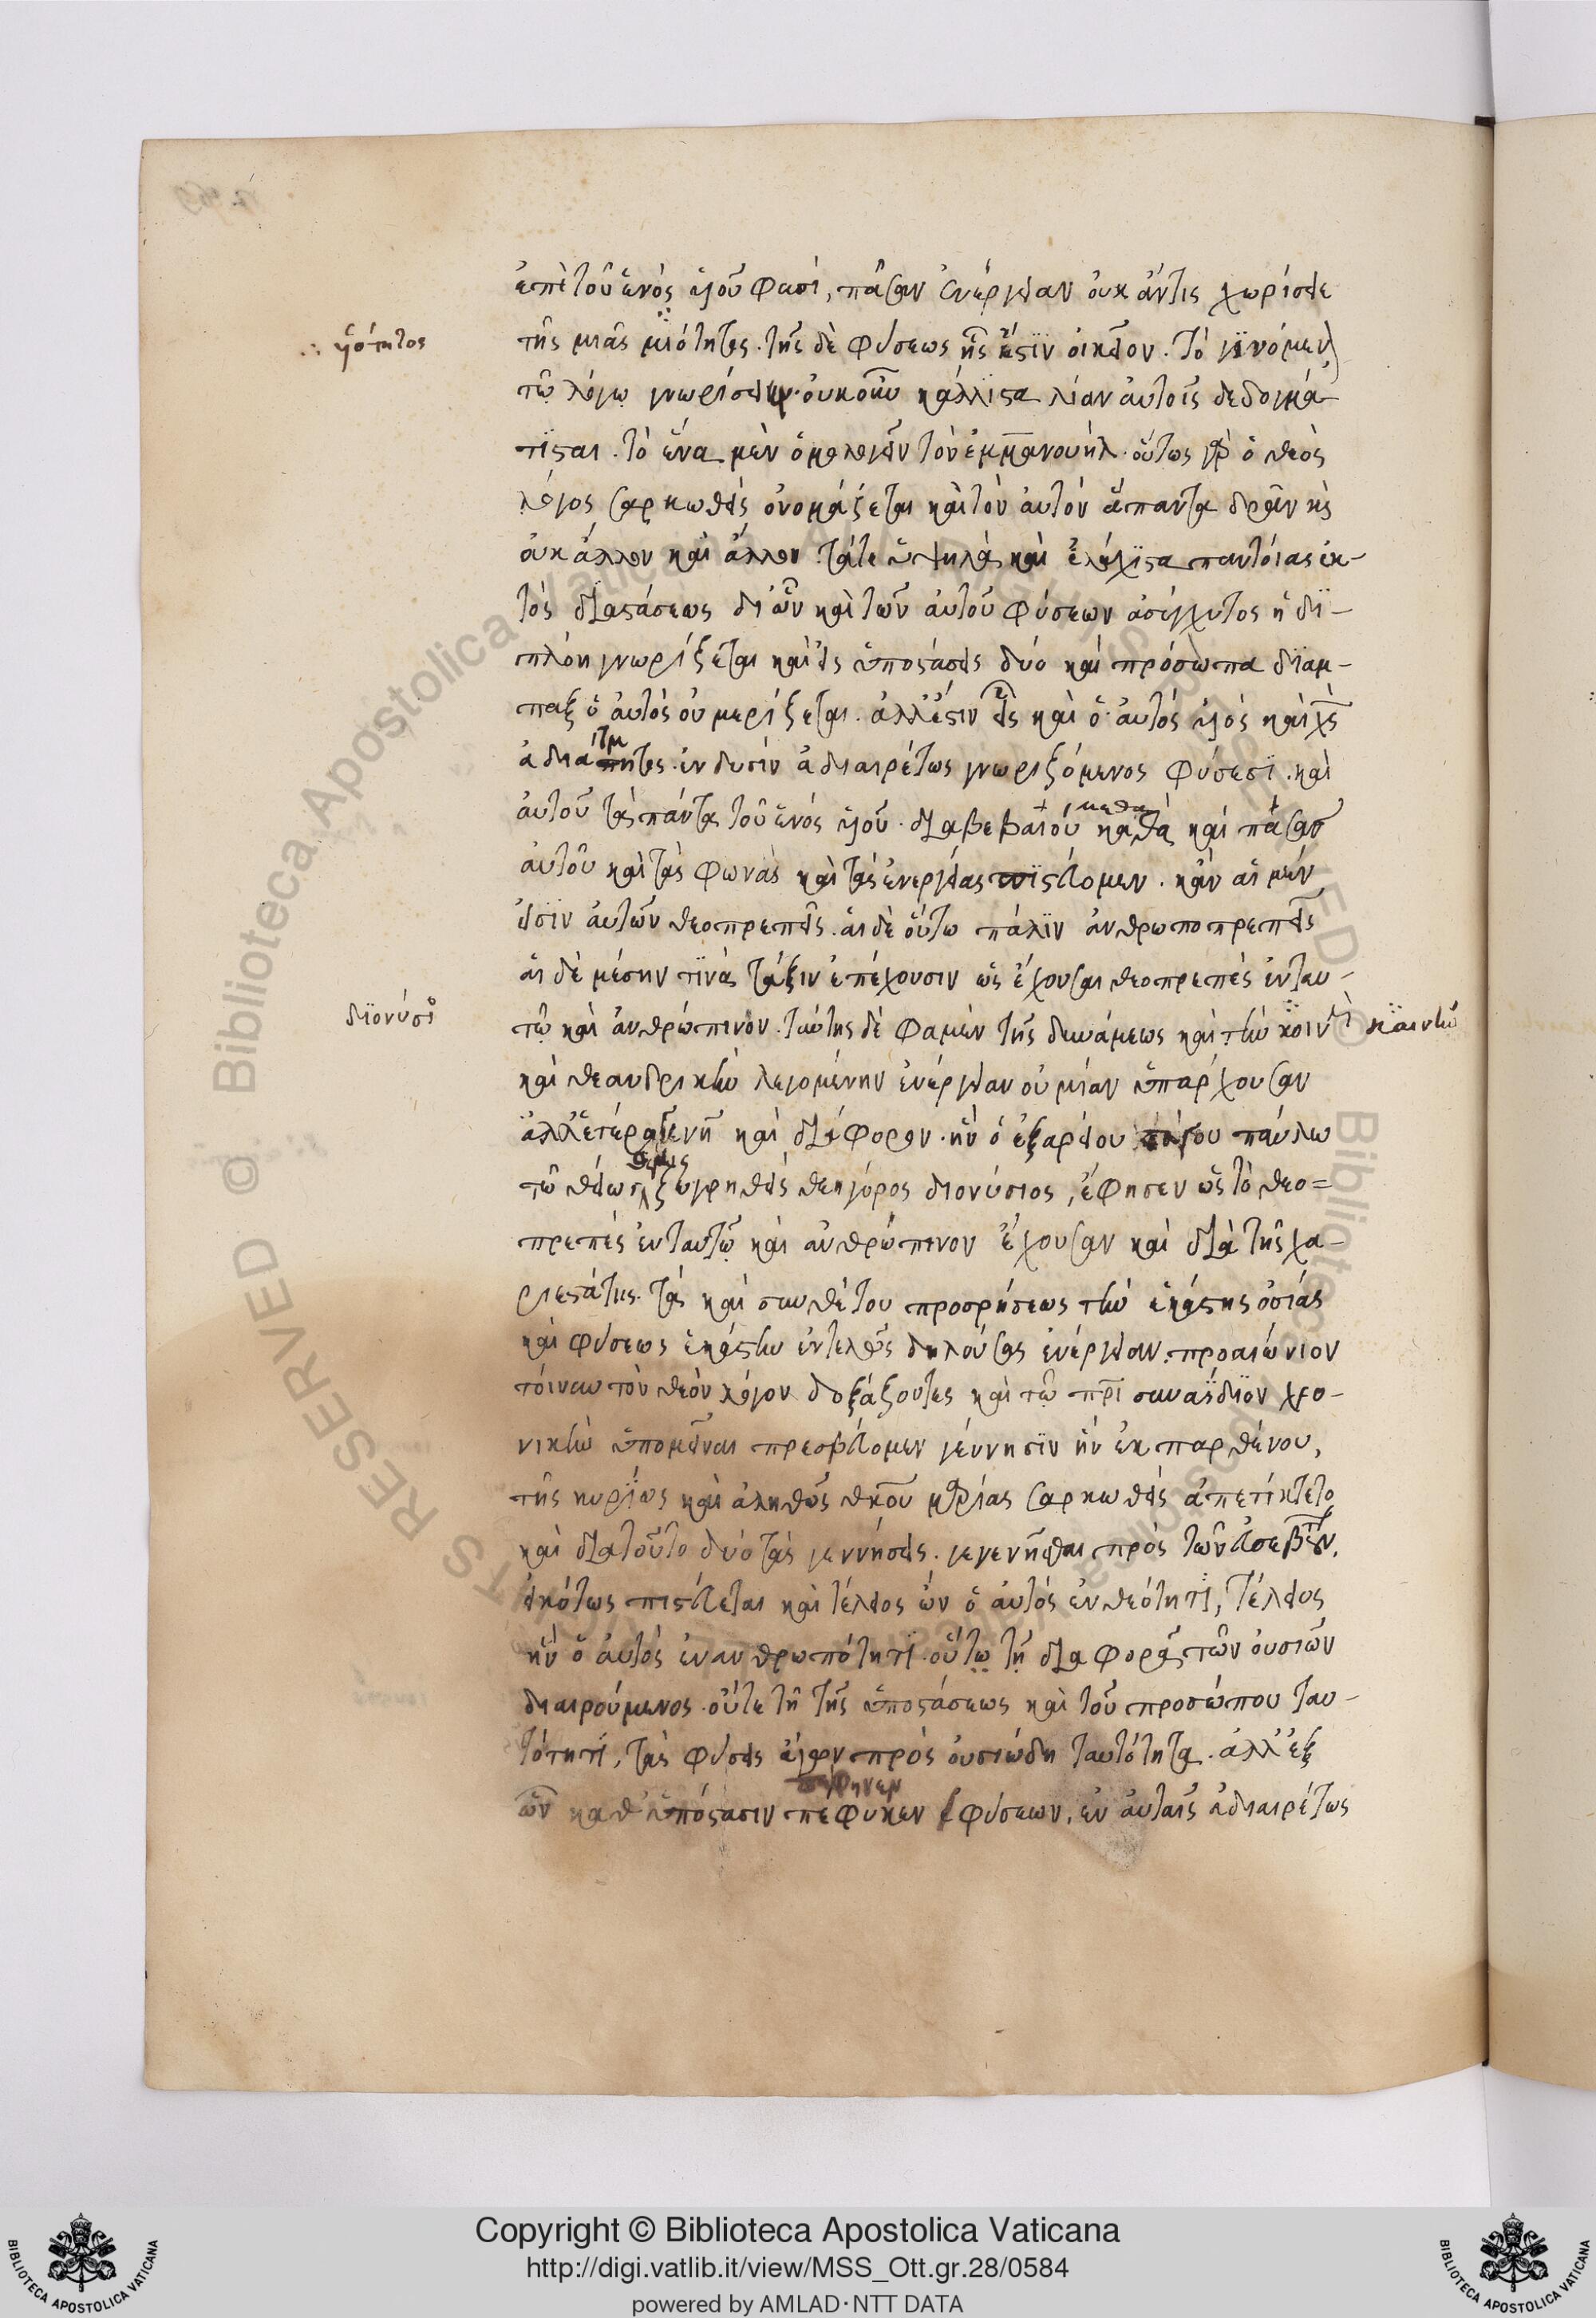 ἐπὶ τοῦ ἑνὸς υἱοῦ φασί, πᾶσαν ἐνέργειαν οὐκ ἄν τις χωρίσειε
∴ υἱότητος
τῆς μιᾶς μιότητος. τῆς δὲ φύσεως ἧς ἐστϊν οἰκεῖον. τὸ γϊνόμεν
τῶ λόγω γνωρίσειεν. οὐκοῦν κάλλϊστα λίαν αὐτοῖς δεδογμά
τϊσται. τὸ ἕνα μὲν ὁμολογεῖν τὸν ἐμμανουήλ. οὕτως γὰρ ὁ θεὸς
λόγος σαρκωθεὶς ὀνομάζεται καὶ τὸν αὐτὸν ἅπαντα δρᾶν κὶς
οὐκ ἄλλον καὶ ἄλλον. τά τε ὑψηλὰ καὶ ἐλάχϊστα παντοίας ἐκ-
τὸς διαστάσεως δι' ὧν καὶ τῶν αὐτοῦ φύσεων ἀσύγχυτος ἡ δϊ-
πλόη γνωρίζεται καὶ εἰς ὑποστάσεις δύο καὶ πρόσωπα δϊαμ-
παξ ὁ αὐτὸς οὐ μερίζεται. ἀλλ' ἔστιν εἷς καὶ ὁ αὐτὸς υἱὸς καὶ χς
ἀδια τμήτως. ἐν δυσὶν ἀδιαιρέτως γνωριζόμενος φύσεσϊ. καὶ
αὐτοῦ τὰ πάντα τοῦ ἑνὸς υἱοῦ. διαβεβαιοῦ μεθα καθὰ καὶ πάσας
αὐτοῦ καὶ τὰς φωνὰς καὶ τὰς ἐνεργείας πϊστεύομεν. κἂν αἱ μέν
εἰσϊν αὐτῶν θεοπρεπεῖς. αἱ δὲ οὕτω πάλϊν ἀνθρωποπρεπεῖς
αἱ δὲ μέσην τϊνὰ τάξιν ἐπέχουσιν ὡς ἔχουσαι θεοπρεπὲς ἐν ταυ-
δϊονύσϊ
τῶ καὶ ἀνθρώπινον. ταύτης δὲ φαμὲν τῆς δυνάμεως καὶ τὴν κοινὴ
καινὴν
καὶ θεανδρικὴν λεγομένην ἐνέργειαν οὐ μίαν ὑπάρχουσαν
ἀλλ' ἑτερογενῆ καὶ διάφορον. ἣν ὁ ἐξ ἀρείου πάγου παύλω
τῶ θείω ζωγρηθεὶς θεηγόρος διονύσιος, ἔφησεν ὡς τὸ θεο=
πρεπὲς ἐν ταυτῶ καὶ ἀνθρώπινον ἔχουσαν καὶ διὰ τῆς χα-
ριεστάτης. τὰς καὶ συνθέτου προσρήσεως τὴν ἑκάστης οὐσίας
καὶ φύσεως ἑκάστην ἐντελῶς δηλούσας ἐνέργειαν. προαιώνιον
τοίνυν τὸν θεὸν λόγον δοξάζοντες καὶ τῶ πρὶ συναΐδϊον χρο-
νικὴν ὑπομεῖναι πρεσβεύομεν γέννησϊν ἣν ἐκ παρθένου,
τῆς κυρίως καὶ ἀληθῶς θκου μρίας σαρκωθεὶς ἀπετίκτετο
καὶ διὰ τοῦτο δύο τὰς γεννήσεις. γεγενῆσθαι πρὸς τῶν εὐσεβῶν,
εἰκότως πιστεύεται καὶ τέλειος ὢν ὁ αὐτὸς ἐν θεότητϊ, τέλειος
ἦν ὁ αὐτὸς ἐν ἀνθρωπότητϊ. οὔτω τῆ διαφορᾶς τῶν οὐσιῶν
διαιρούμενος. οὔτε τῆ τῆς ὑποστάσεως καὶ τοῦ προσώπου ταυ-
τότητϊ, τὰς φύσεις ἄγων πρὸς οὐσιώδη ταυτότητα. ἀλλ' ἐξ
πέφηνεν
ὧν καθ' ὑπόστασιν πεφυκεν φύσεων, ἐν αὐταῖς ἀδιαιρέτως
Copyright © Biblioteca Apostolica Vaticana
http://digi.vatlib.it/view/MSS_Ott.gr.28/0584
powered by AMLAD·NTT DATA